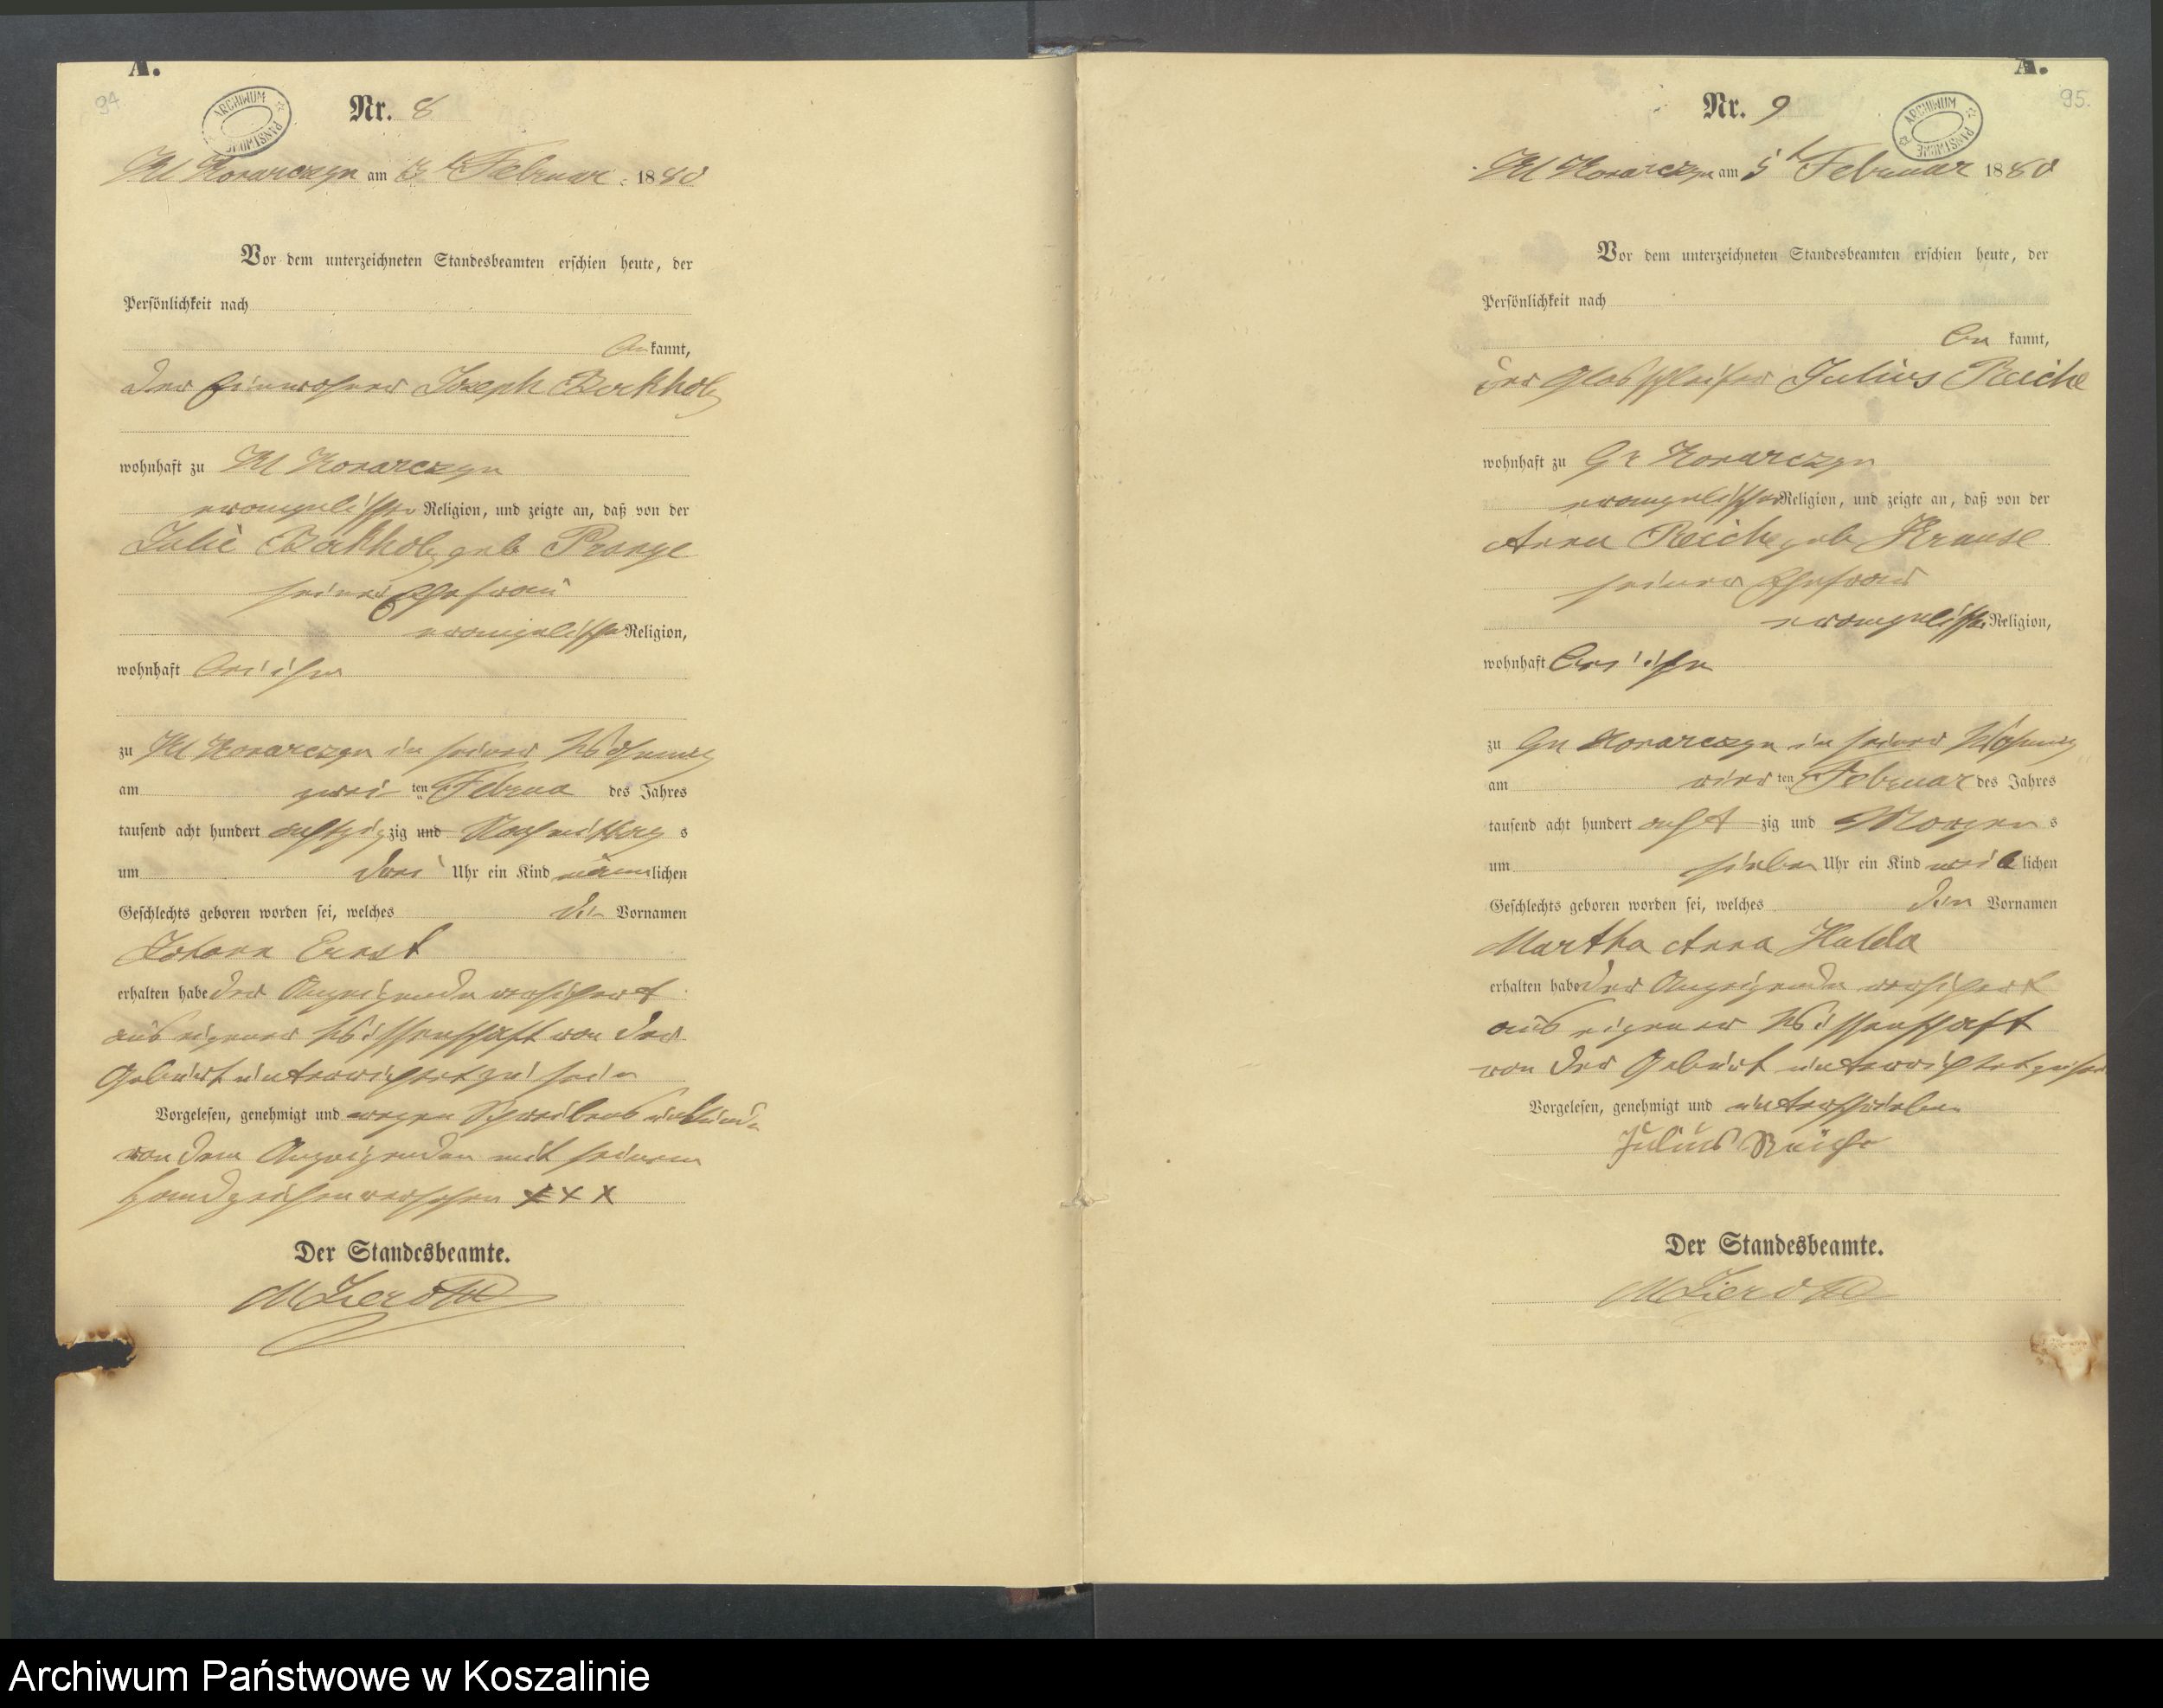 A.
94
ARCHIWUM PAŃSTWOWE
Nr. 8
Kl Konarczyn am 3t Februar 1880
Vor dem unterzeichneten Standesbeamten erschien heute, der
Persönlichkeit nach
bekannt,
der Einwohner Joseph Borkholz
wohnhaft zu Kl Konarczyn
evangelischer Religion, und zeigte an, daß von der
Julie Borkholz geb Prange
seiner Ehefrau
evangelischer Religion,
wohnhaft bei ihm
zu Kl Konarczyn in seiner Wohnung
am zwei ten Februa des Jahres
tausend acht hundert achtzig zig und Nachmittag s
um drei Uhr ein Kind männlichen
Geschlechts geboren worden sei, welches die Vornamen
Johann Ernst
erhalten habe der Anzeigende versichert
aus eigener Wissenschaft von der
Geburt unterrichtet zu sein
Vorgelesen, genehmigt und wegen Schreibens unkunde
von dem Anzeigenden mit seinem
Handzeichen versehen x x x
Der Standesbeamte.
M Zieroth
A.
95.
ARCHIWUM PAŃSTWOWE
Nr. 9
Kl Konarczyn am 5t Februar 1880
Vor dem unterzeichneten Standesbeamten erschien heute, der
Persönlichkeit nach
be kannt,
der Glasschleifer Julius Reiche
wohnhaft zu Gr Konarczyn
evangelischer Religion, und zeigte an, daß von der
Anna Reiche geb Krause
seiner Ehefrau
evangelischer Religion,
wohnhaft bei ihm
zu Gr Konarczyn in seiner Wohnung
am vier ten Februar des Jahres
tausend acht hundert acht zig und Morgen s
um sieben Uhr ein Kind weiblichen
Geschlechts geboren worden sei, welches den Vornamen
Martha Anna Hulda
erhalten habe der Anzeigende versichert
aus eigener Wissenschaft
von der Geburt unterrichtet zu sein
Vorgelesen, genehmigt und unterschrieben
Julius Reiche
Der Standesbeamte.
M Zieroth
Archiwum Państwowe w Koszalinie